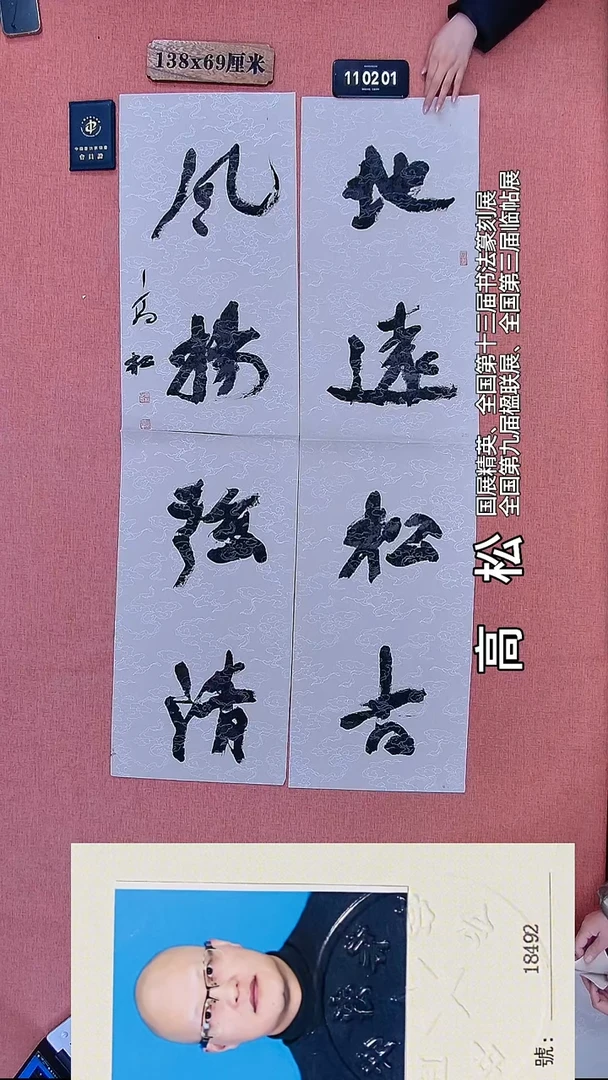 138x69厘米
11 02 01
中国书法家协会
會員證
地遠松古
风揚弦清
高松
国展精英、全国第十三届书法篆刻展
全国第九届楹联展、全国第三届临帖展
高 松
號：18492